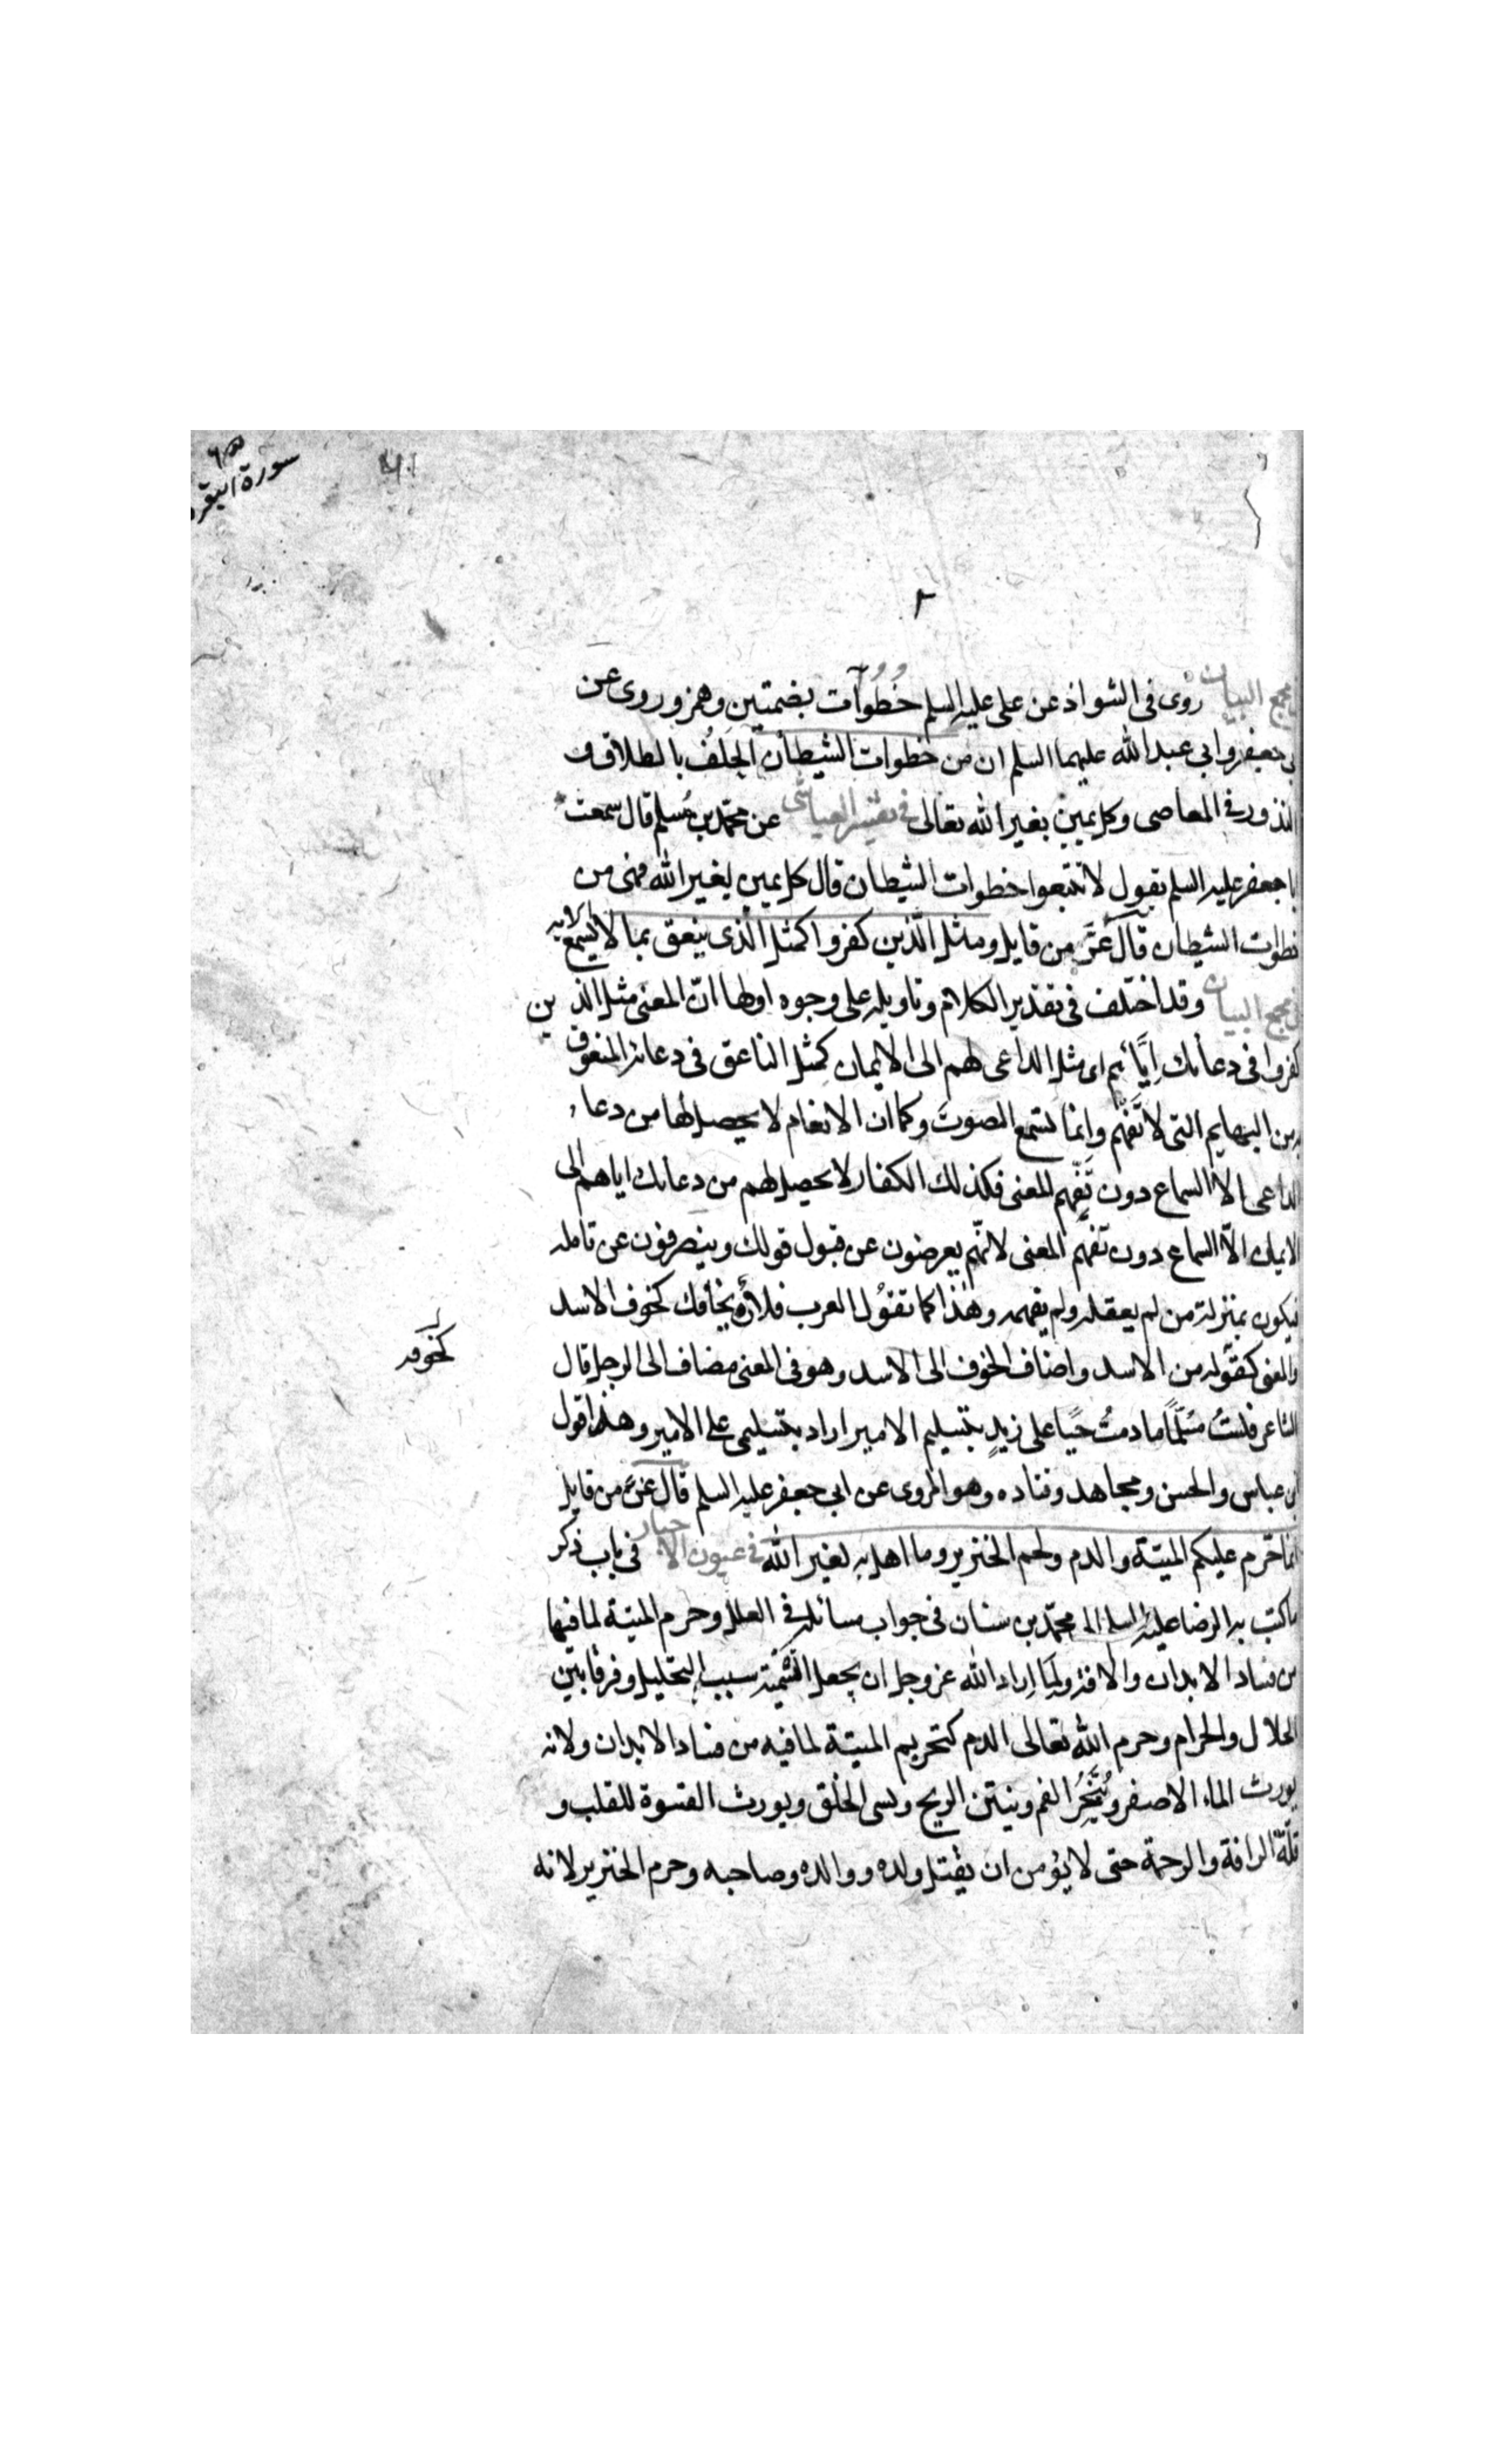 سورة البقرة
في مجمع البيان روى فى الشواذ عن على عليه السلم خُطُوآت بضمتين وهمز وروى عن
ابى جعفر وابى عبد الله عليهما السلم ان من خطوات الشيطان الحلف بالطلاق و
النذور فى المعاصى وكل يمين بغير الله تعالى فى تفسير العياشى عن محمّد بن مُسلم قال سمعت
ابا جعفر عليه السلم يقول لا تتبعوا خطوات الشيطان قال كل يمين لغير الله فهى من
خطوات الشيطان قال عَزّ من قايل ومثل الّذين كفروا كمثل الّذى ينعق بما لا يسمع الايه
فى مجمع البيان وقد اختلف فى تقدير الكلام وتاويله على وجوه اولها انّ المعنى مثل الذين
كفروا فى دعائك اِيَّاهُم اى مثل الداعى لهم الى الايمان كمثل الناعق فى دعائه المنعوق
به من البهايم التى لا تَفْهَم وانما تسمع الصوت وكما ان الانعام لا يحصل لها من دعاء
الداعى الا السماع دون تَفَهّم المعنى فكذلك الكفار لا يحصل لهم من دعائك اياهم الى
الايمان الاّ السماع دون تفهم المعنى لانّهم يعرضون عن قبول قولك وينصرفون عن تامله
فيكون بمنزلة من لم يعقله ولم يفهمه وهذا كما تقوُل العرب فلان يخافك كخوف الاسد
والمعنى كقوله من الاسد واضاف الخوف الى الاسد وهو فى المعنى مضاف الى الرجل قال
كخوفه
الشاعر فلستُ مُسَلّمًا ما دمتُ حيًّا على زيدٍ بتسليم الامير اراد بتسليمى على الامير وهذا قول
ابن عباس والحسن ومجاهد وقتاده وهو المروى عن ابى جعفر عليه السلم قال عَزّ من قايل
انما حرم عليكم الميتة والدم ولحم الخنزير وما اهل به لغير الله فى عيون الاخبار فى باب ذكر
ما كتب به الرضا عليه السلم الى محمّد بن سنان فى جواب مسائله فى العلل وحرم الميتة لما فيها
من فساد الابدان والافة ولما اراد الله عز وجل ان يجعل التسمية سببا للتحليل وفرقا بين
الحلال والحرام وحرم الله تعالى الدم كتحريم الميتة لما فيه من فساد الابدان ولانه
يورث الماء الاصفر ويُبَخِّرُ الفم وينتن الريح ويسى الخلق ويورث القسوة للقلب و
قلّة الرافة والرحمة حتى لا يؤمن ان يقتل ولده ووالده وصاحبه وحرم الخنزير لانه